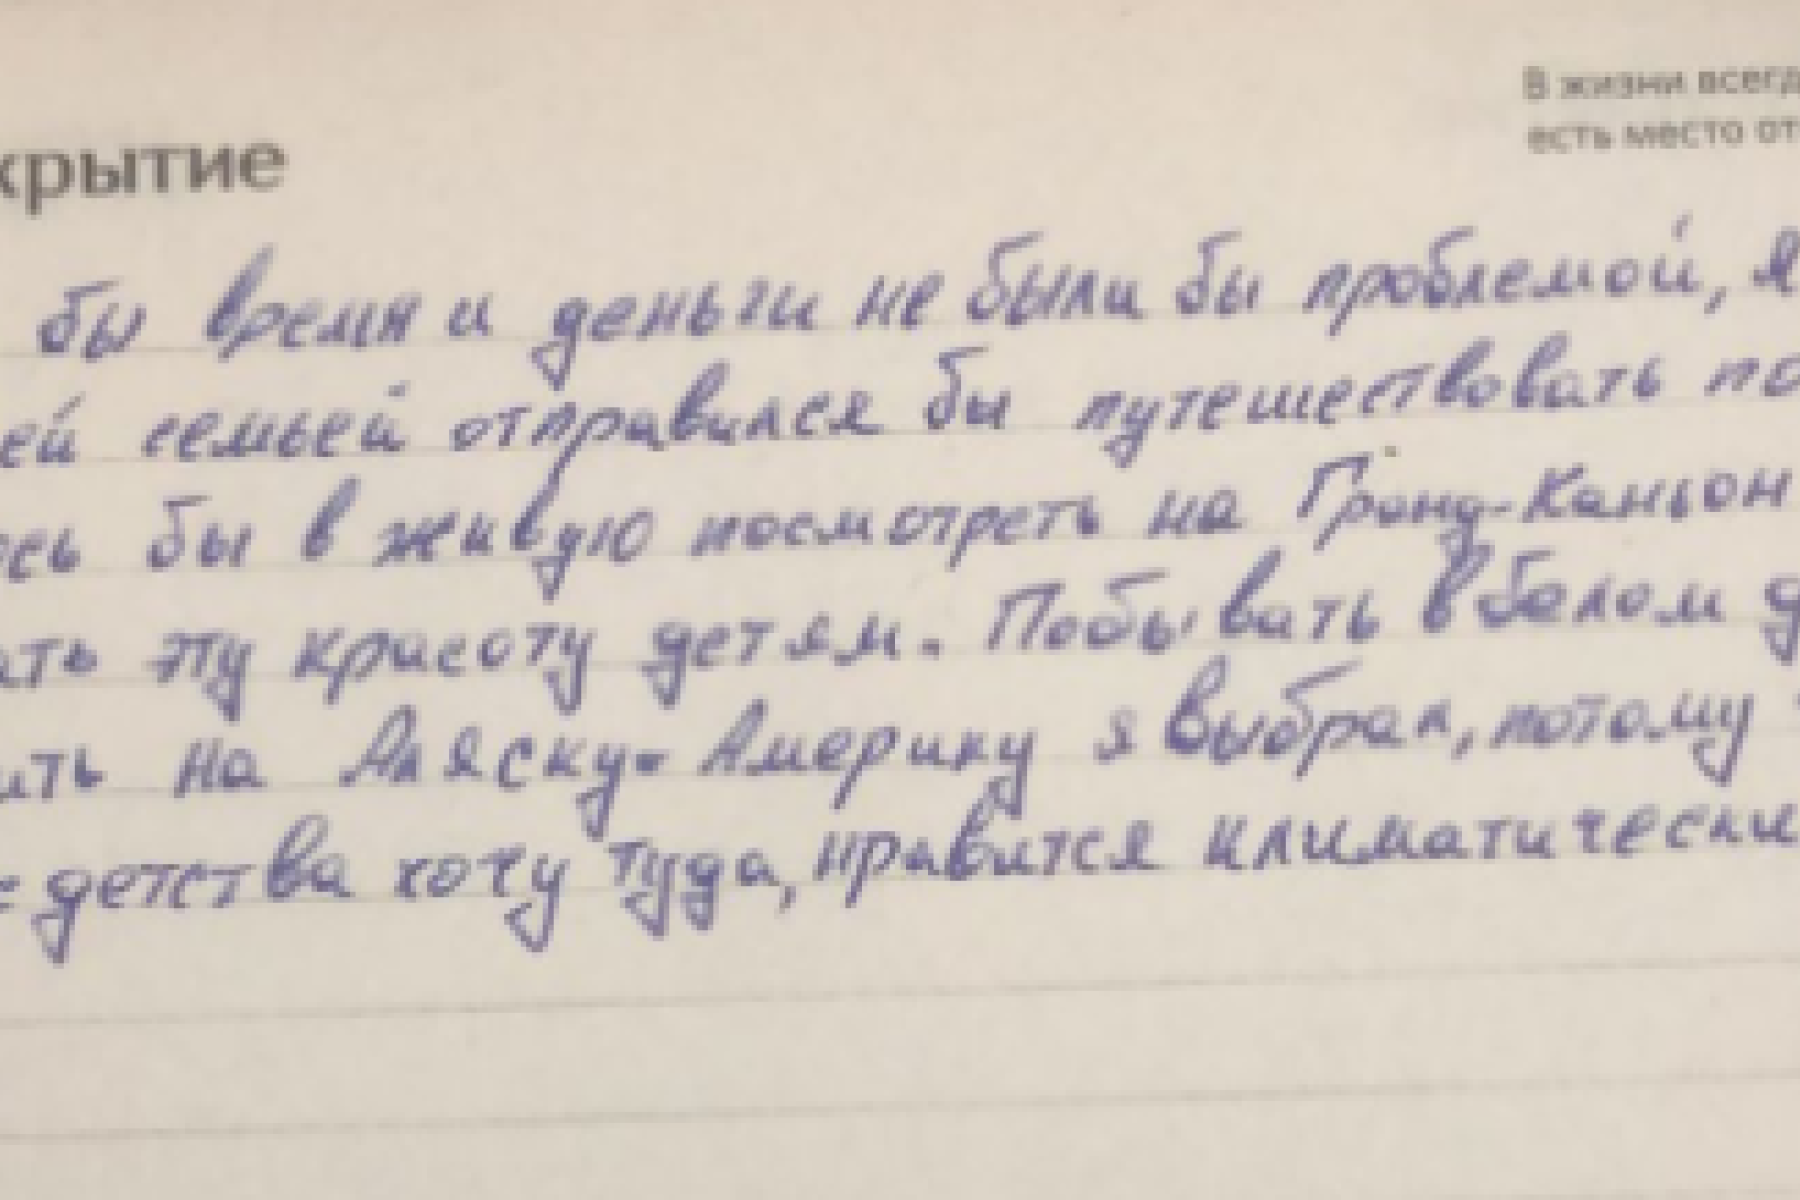 В жизни всегд
есть место от
крытие
бы время и деньги не были бы проблемой, я
ей семьей отправился бы путешествовать по
ось бы в живую посмотреть на Гранд-Каньон
ать эту красоту детям. Побывать в белом д
ить на Аляску. Америку я выбрал, потому
с детства хочу туда, нравится климатически